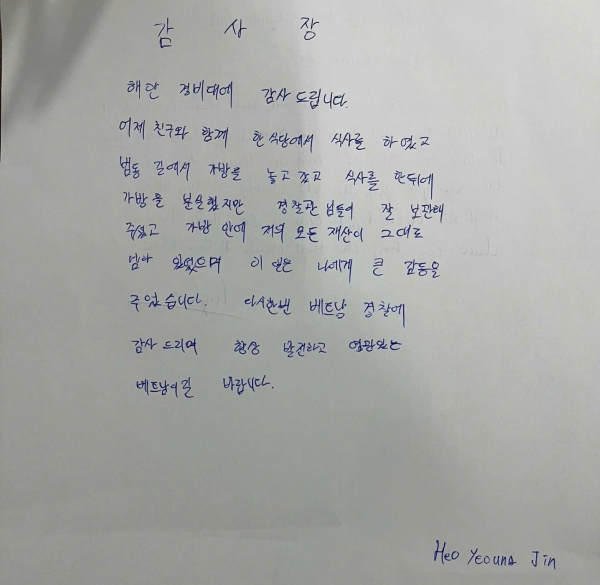 감 사 장
해안 경비대에 감사 드립니다.
어제 친구와 함께 한 식당에서 식사를 하였고
길에서 가방을 놓고 갔고 식사를 한뒤에
가방을 분실했지만 경찰관 님들이 잘 보관해
주셨고 가방 안에 저의 모든 재산이 그대로
남아 있었으며 이 일은 나에게 큰 감동을
주었습니다. 다시한번 베트남 경찰에
감사 드리며 항상 발전하고 영광있는
베트남이길 바랍니다.
Heo Yeoung Jin